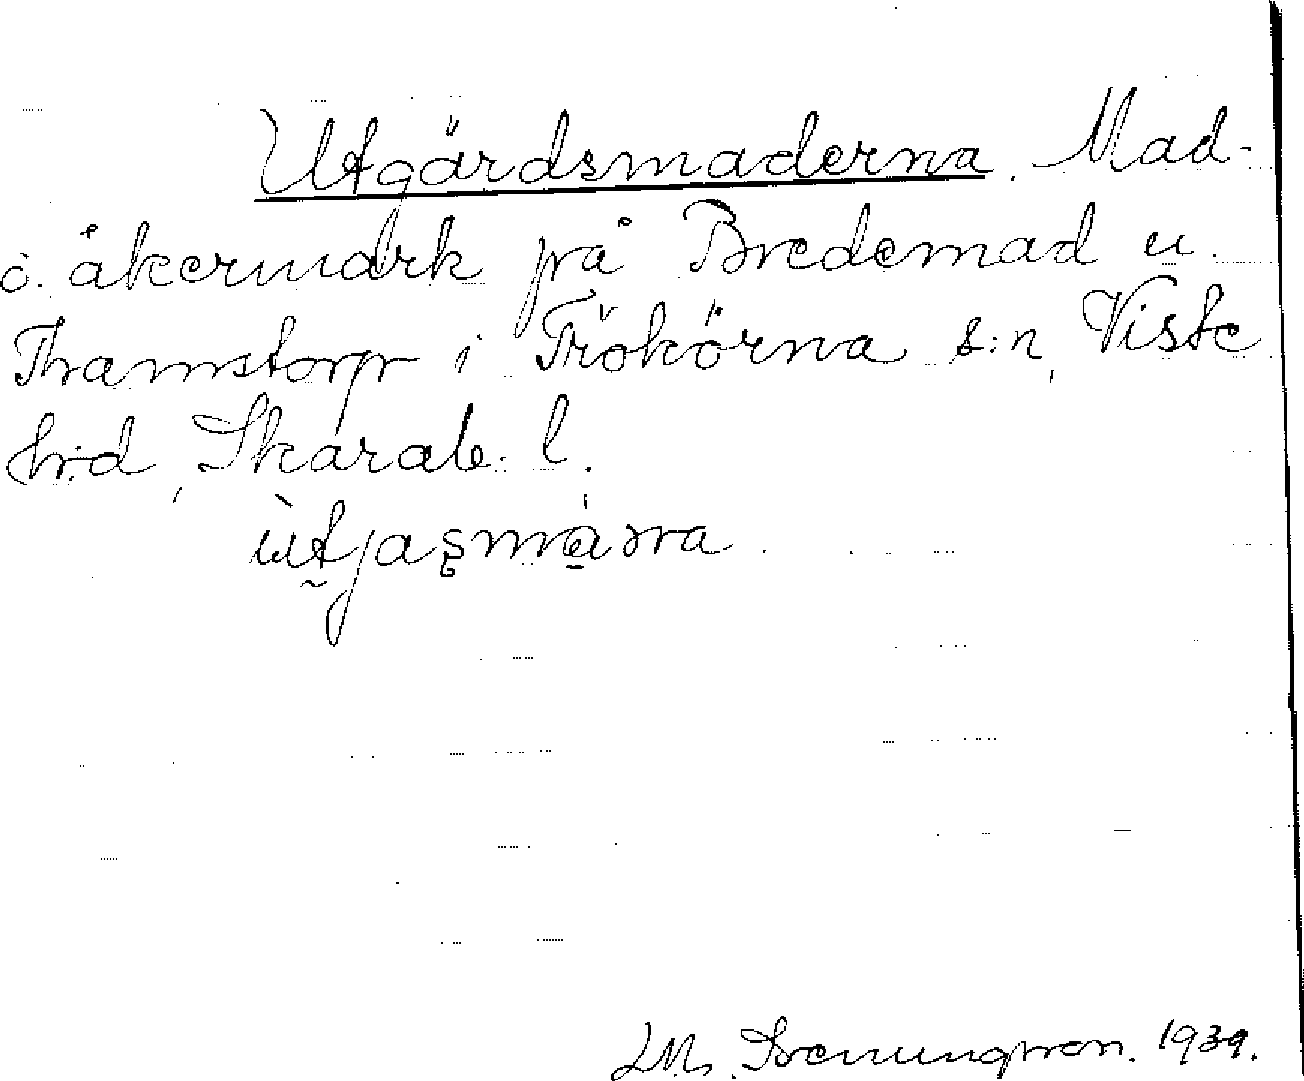 Utgärdsmaderna. Mad-
o. åkermark på Bredemad u.
Thamstorp i Frökörna s:n, Viste
h:d, Skarab. l.
ùtjasmàꞛra.
Svenungsson. 1939.